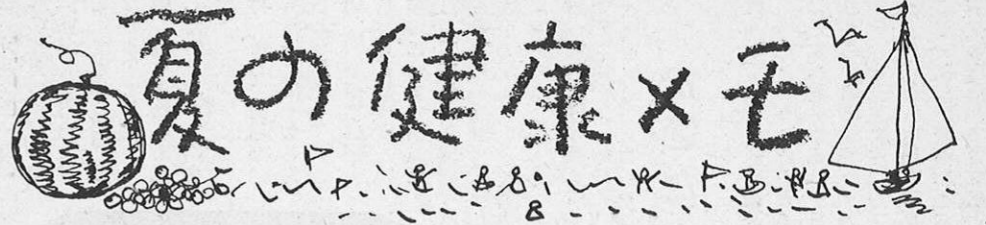 夏の健康メモ